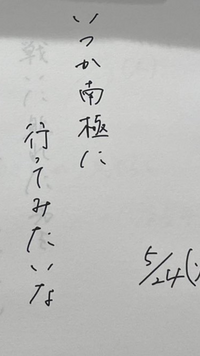 いつか南極に
行ってみたいな
5/24(